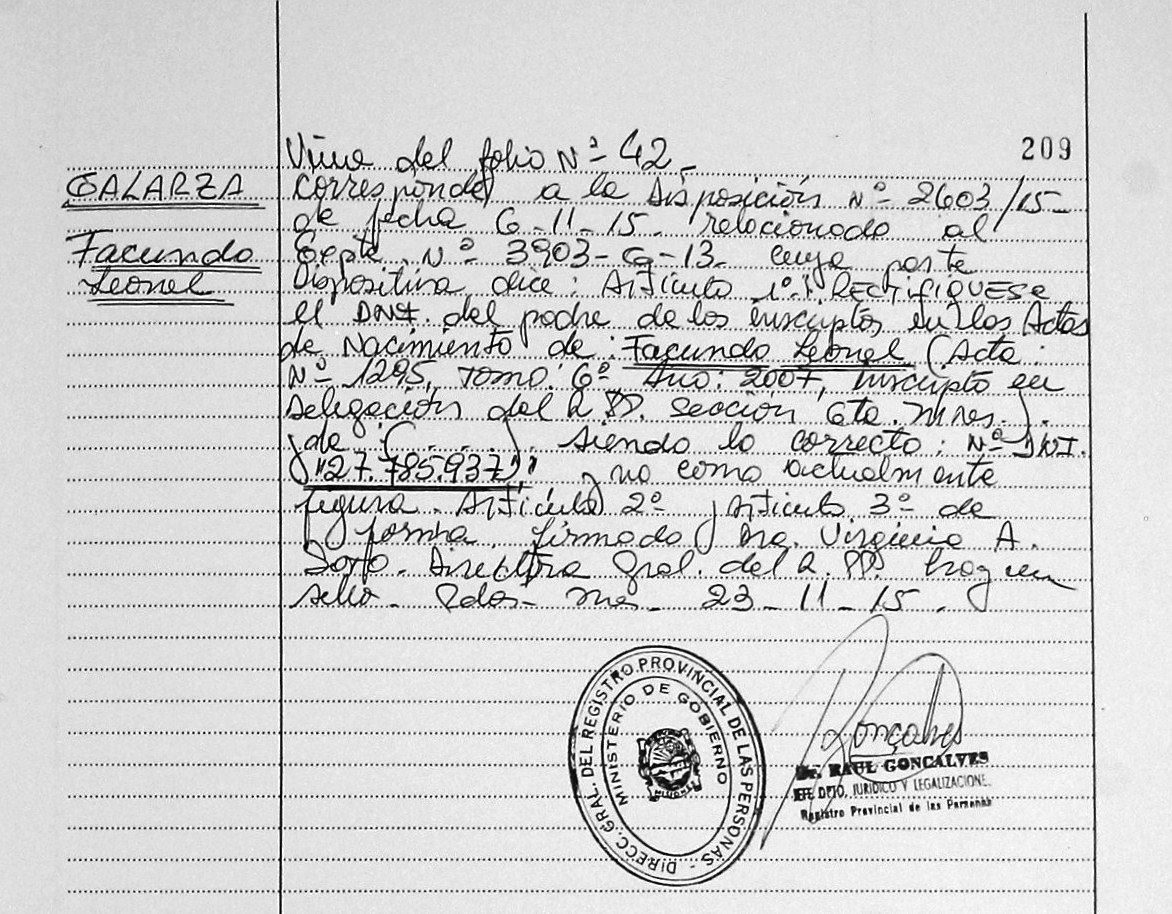 209
Viene del folio Nº 42_
GALARZA
Corresponde a la Disposición Nº 2603/15_
de fecha 6-11-15. relacionado al
Facundo
Expte. Nº 3903-G-13_ cuya parte
Leonel
Dispositiva dice: Artículo 1º: RECTIFIQUESE
el DNI. del padre de los inscriptos en las Actas
de Nacimiento de: Facundo Leonel (Acta:
Nº 1295, Tomo: 6º Año: 2007, inscripto en
Delegación del R.PP. Sección 6ta. Mnes.)
de (......). siendo lo correcto: Nº DNI.
"27.785.937", y no como actualmente
figura. Artículo 2º y Artículo 3º de
forma. Firmado Dra. Virginia A.
Directora Gral. del R.PP. Hay un
sello. Pdas. Mnes. 23-11-15.
DIRECC. GRAL. DEL REGISTRO PROVINCIAL DE LAS PERSONAS -
MINISTERIO DE GOBIERNO
MISIONES
Gonçalves
Dr. RAUL GONCALVES
JEFE DPTO. JURIDICO Y LEGALIZACIONE
Registro Provincial de las Personas